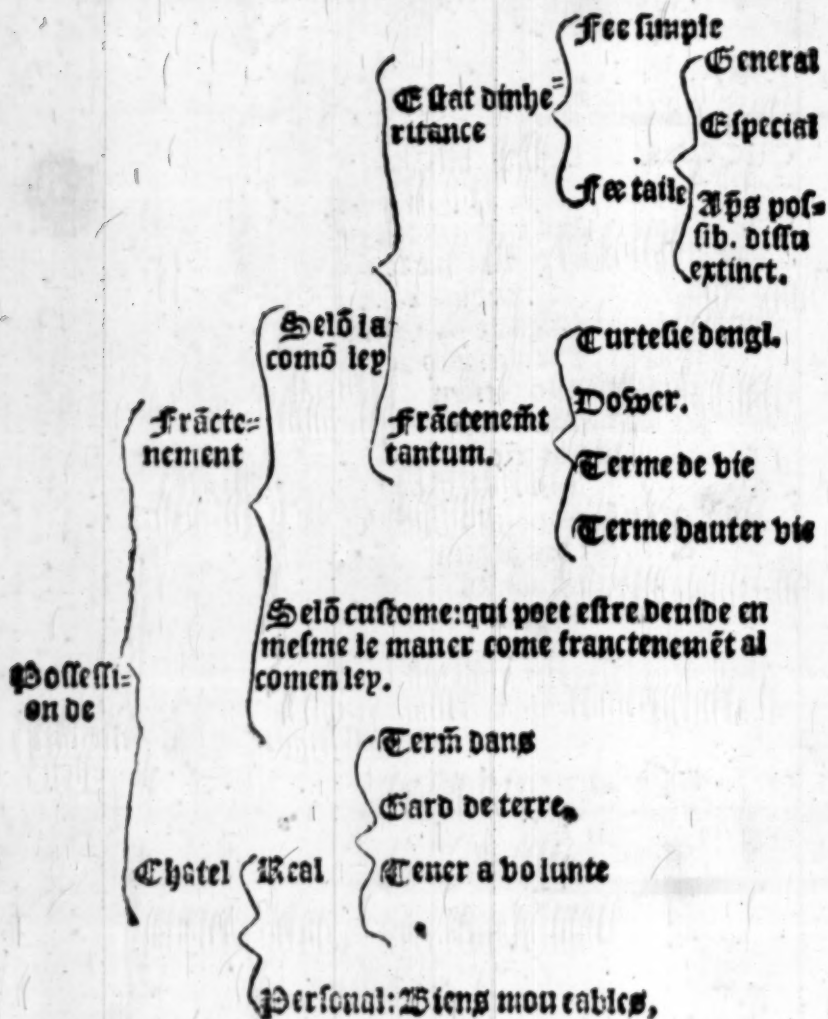 Fee simple
General
Estat dinhe=
ritance
Especial
Fee taile
Ap̃s pos=
sib. dissu
extinct.
Selõ la
comõ ley
Curtesie dengl.
Frãcte=
nement
Frãctenem̃t
tantum.
Dower.
Terme de vie
Terme dauter vie
Selõ custome: qui poet estre deuide en
mesme le maner come franctenemẽt al
comen ley.
Possessi=
on de
Term̃ dans
Gard de terre,
Chatel
Real
Tener a volunte
Personal: Biens moueables,